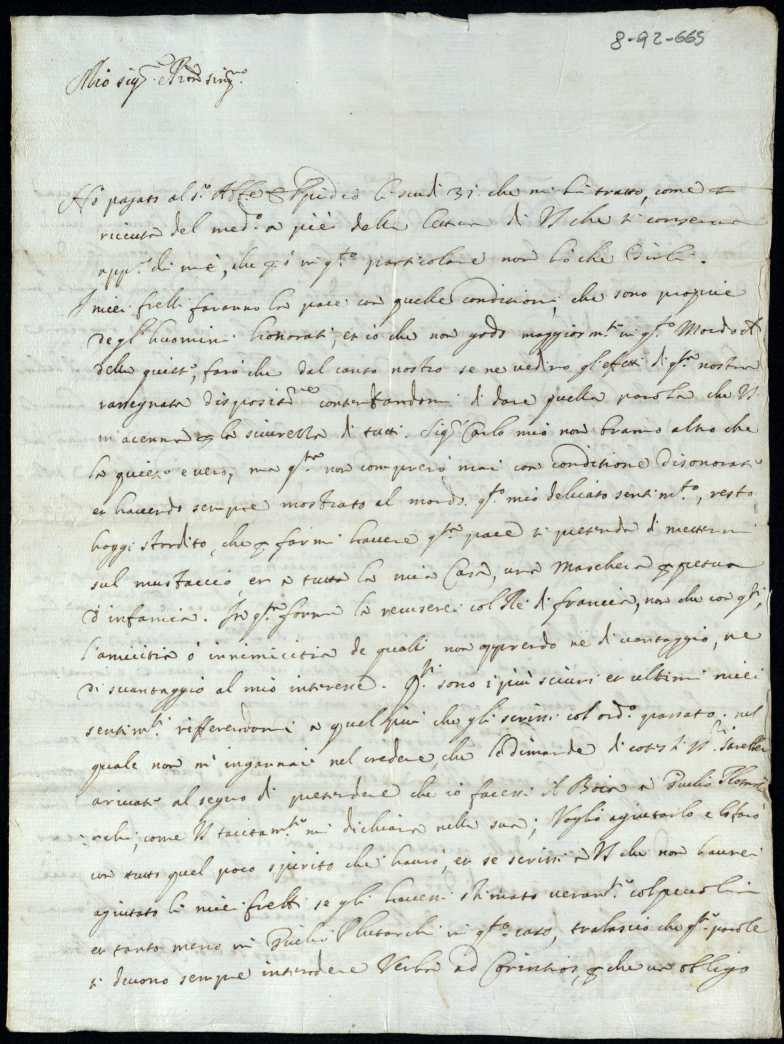 8-92-665
Mio sigr. e Pron sing.mo
Hò pagato al sr. Abte Elpidio li scudi 31 che mi hà tratto, come
riceuta del med.o a piè della lettera di VS che si conserva
app.o di mè, che in q.to particolare non hò che dirli.
I miei frelli faranno la pace con quelle conditioni, che sono proprie
degl'huomini honorati, et io che non godo maggiorm.te in q.to Mondo
della quiete, farò che dal canto nostro se ne vedino gl'efetti di q.ta nostra
rassegnata dispositne contentandomi di dare quella parola che VS
m'acenna p la sicurezza di tutti. Sigr. Carlo mio non bramo altro che
la quiete è vero, ma q.ta non comprerò mai con conditione disonorata
et havendo sempre mostrato al mondo q.to mio delicato sentim.to, resto
hoggi stordito, che p farmi havere q.ta pace si pretenda di mettermi
sul mustaccio et a tutta la mia Casa, una maschera ppetua
d'infamia. In q.ta forma la recuserei col Rè di francia, non che con q.li
l'amicitia ò innimicitia de quali non apprendo ne di vantaggio, ne
di svantaggio al mio interesse. Q.ti sono i più sicuri et ultimi miei
sentim.ti rifferendomi a quel più che gli scrissi col ord.o passato; nel
quale non m'ingannai nel credere che le dimande di cotesti SS.ri sarebbero
arivate al segno di pretendere che io facessi il Boia a Duilio
come VS tacitam.te mi dichiara nella sua; Voglio agiutarlo e lo farò
con tutto quel poco spirito che haurò, et se scrissi a VS che non haurei
agiutato li miei frelli se gli havessi stimato veram.te colpevoli
et tanto meno in Duilio Plutarchi in q.to caso, tralascio che q.te parole
si devono sempre intendere Verba ad Corintios, p che un obligo